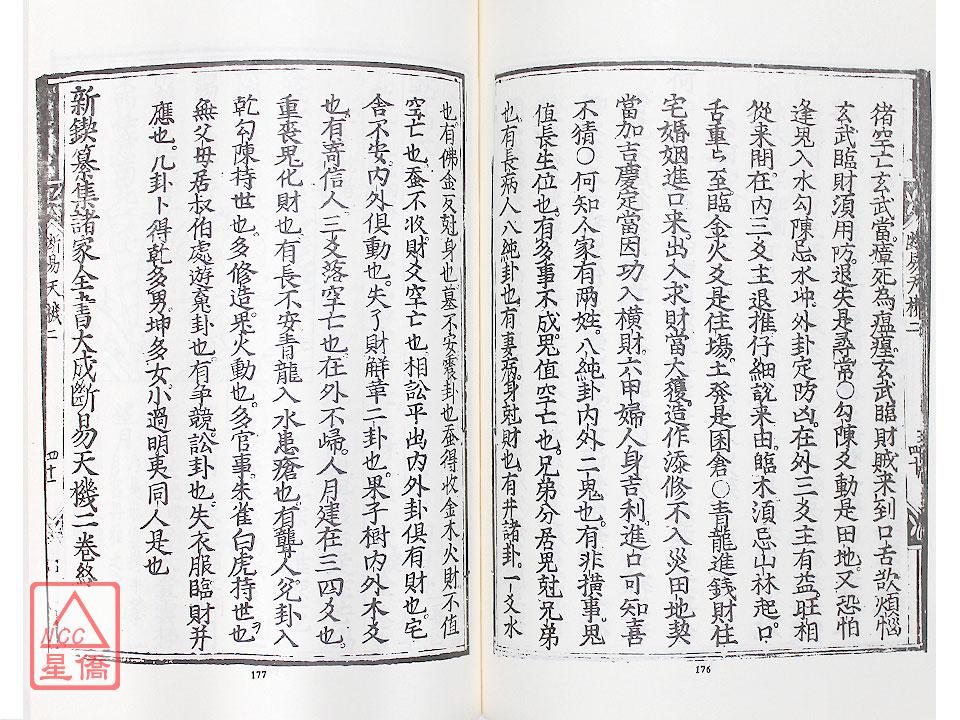 猪空亡玄武當瘴死為瘟瘽玄武臨財賊来到口舌欲煩惱
玄武臨財須用防退失是尋常○勾陳爻動是田地又恐怕
逢鬼入水勾陳忌水坤外卦定防凶在外三爻主有益旺相
從来閙在內三爻主退推仔細說来由臨木須忌山林起口
舌重々至臨金火爻是住塲土發是困倉○青龍進錢財住
宅婚姻進口来出入求財當大獲造作添修不入災田地契
當加吉慶定當因功入横財六甲婦人身吉利進口可知喜
不猜○何知人家有兩姓八純卦內外二鬼也有非横事鬼
值長生位也有多事不成鬼值空亡也兄弟分居鬼尅兄弟
也有長病人八純卦也有事病身尅財也有井諸卦一爻水
斷易天機二
也有佛金反尅身也墓不安震卦也蚕得收金木火財不值
空亡也蚕不收財爻空亡也相訟平出內外卦俱有財也宅
舍不安內外俱動也失了財解革二卦也果子樹內外木爻
也有寄信人三爻落空亡也在外不歸人月建在三四爻也
重喪鬼化財也有長不安青龍入水患瘡也有聾人兊卦入
乾勾陳持世也多修造果火動也多官事朱雀白虎持世也
無父母居叔伯處遊䰟卦也有爭競訟卦也失衣服臨財并
應也几卦卜得乾多男坤多女小過明夷同人是也
新鍥纂集諸家全書大成斷易天機二卷終
斷易天機二
四十一
177
176
NCC
星僑